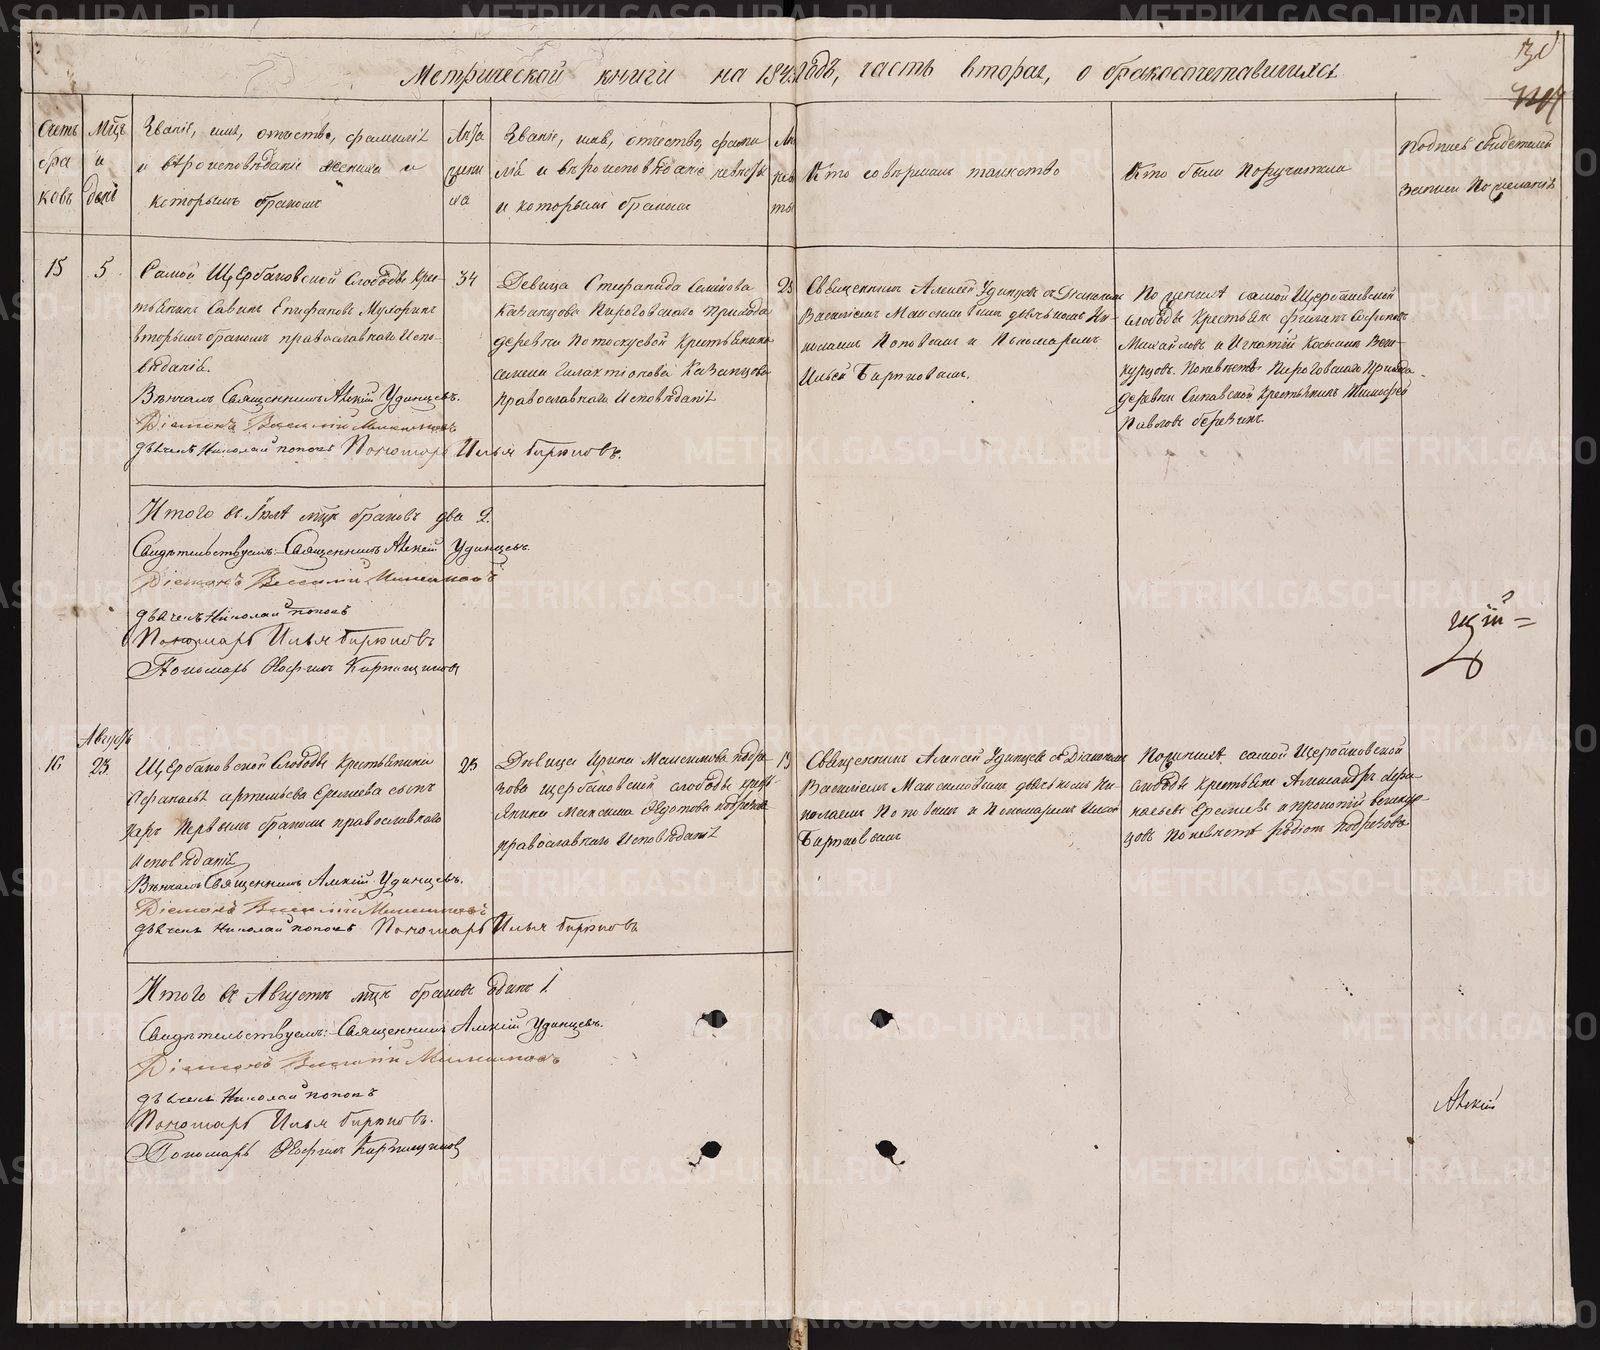 Метрической книги на 184 годъ, часть вторая, о бракосочетавшихся
Счетъ браковъ
Мцъ и день
Званіе, имя, отчество, фамилія
и вѣроисповѣданіе жениха и
которымъ бракомъ
Лѣта жениха
Званіе, имя, отчество, фами
лія и вѣроисповѣданіе невѣсты
и которымъ бракомъ
Лѣ невѣ сты
Кто совершалъ таинство
Кто были поручители
Подпись свидетелей
записи по желанію
15
5
Самой Щербаковской Слободы Крес-
тьянинъ Савинъ Епифановъ
вторымъ бракомъ православнаго Испо-
вѣданія.
Вѣнчалъ Священникъ Алексій Удинцевъ.
Діаконъ Василій
дьячекъ Николай поповъ Пономарь Илья бирюковъ.
34
Девица Стефанида Семенова
Казанцова Пироговского прихода
деревни Потаскуевой Крестьянина
семена Галактіонова Казанцова
Православнаго Исповѣданія
23
Священникъ Алексей Удинцевъ съ Діакономъ
Василіемъ дьячькомъ Ни-
колаемъ Поповымъ и Пономаремъ
Ильей Бирюковымъ.
По женихѣ самой Щербаковской
слободы Крестьяне филипъ
Михайловъ и Игнатій Косминъ Вен-
курцовъ. По невѣстѣ Пироговского Прихода
деревни Сипавской Крестьянинъ Тимофей
Павловъ березинъ.
Итого въ Іюлѣ мцѣ браковъ два 2.
Свидѣтельствуемъ: Священникъ Алексій Удинцевъ.
Діаконъ Василій
дьячекъ Николай поповъ
Пономарь Илья бирюковъ
Пономарь Кирпищиковъ
Августъ
16
23.
Щербаковской Слободы Крестьянина
Афанасья артемьева Еремеева сынъ
Первымъ бракомъ православнаго
Исповѣданія
Вѣнчалъ Священникъ Алексій Удинцевъ.
Діаконъ Василій
дьячекъ Николай поповъ Пономарь Илья бирюковъ
23
Дѣвица Ирина Максимова подре-
зова щербаковской слободы крест-
янина Максима Федотова подрезова
православнаго Исповѣданія
19
Священникъ Алексей Удинцевъ съ Діакономъ
Василіемъ дьячькомъ Ни-
колаемъ Поповымъ и Пономаремъ Ильей
Бирюковымъ
По женихѣ самой Щербаковской
слободы Крестьяне Александръ
Еремеевъ и прокопій венкур-
цовъ По невѣстѣ федотъ подрезовъ
Итого въ Августѣ мцѣ браковъ одинъ 1.
Свидѣтельствуемъ: Священникъ Алексій Удинцевъ.
Діаконъ Василій
дьячекъ Николай поповъ
Пономарь Илья бирюковъ.
Пономарь Кирпищиковъ
Алексій
METRIKI.GASO-URAL.RU